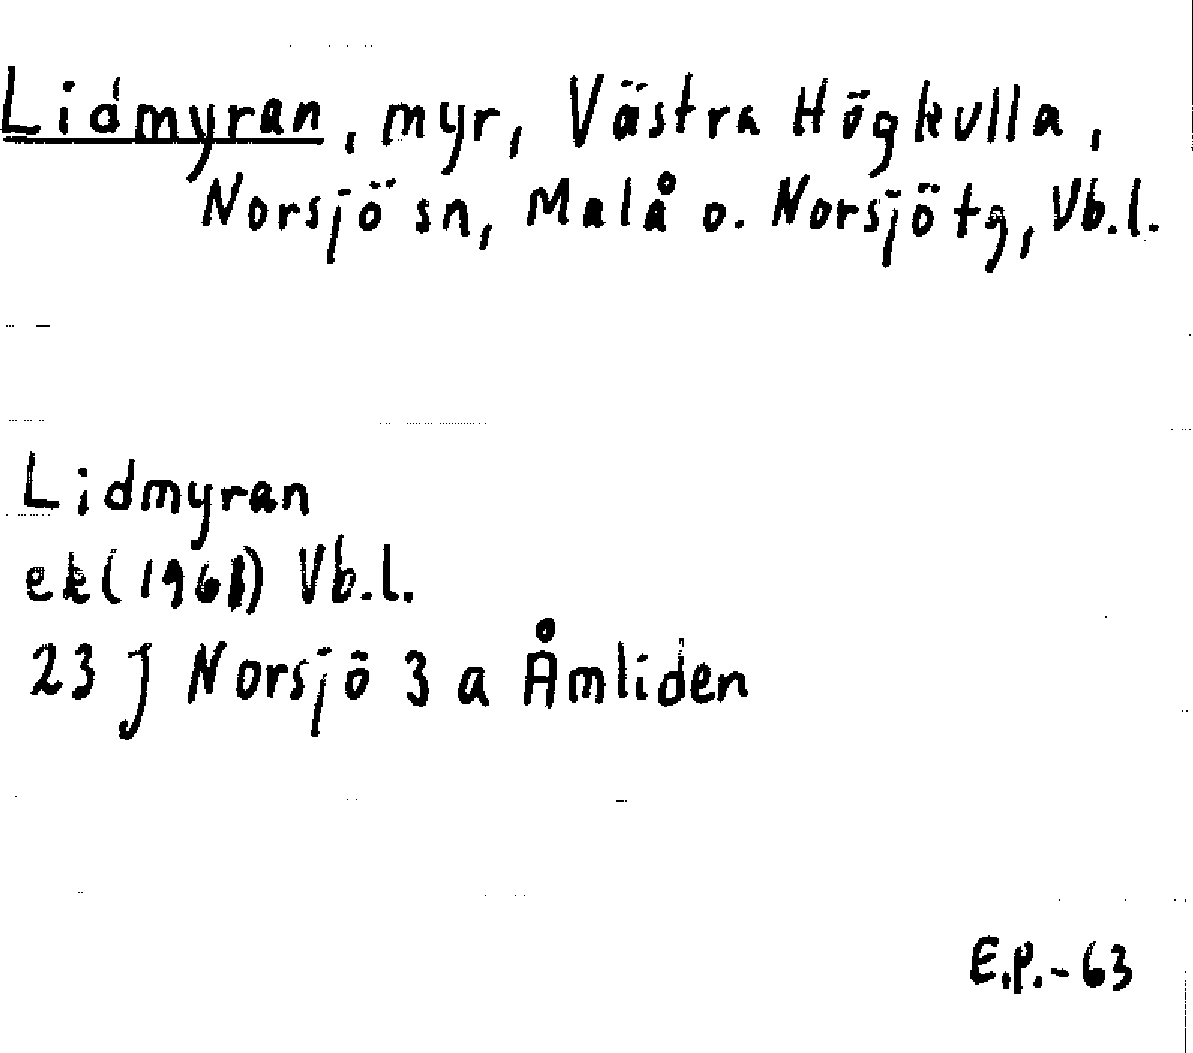 Lidmyran, myr, Västra Högkulla,
Norsjö sn, Malå o. Norsjö tg, Vb.l.
Lidmyran
ek (1961) Vb.l.
23 J Norsjö 3 a Åmliden
E.P.-63